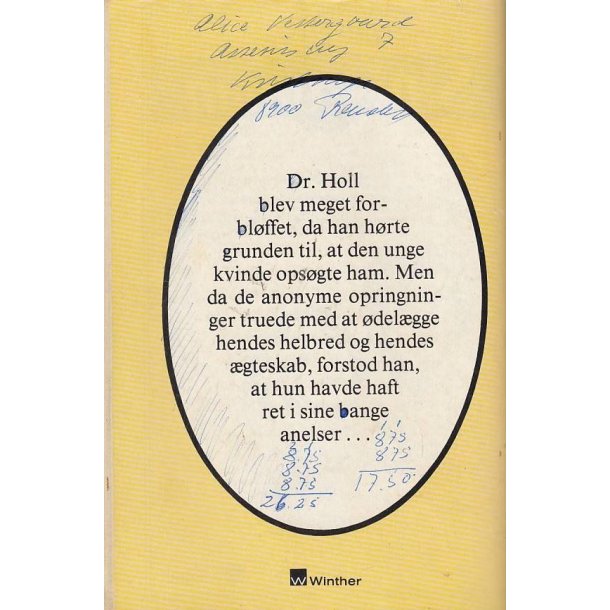 Alice Vestergaard
7
8900 Randers
Dr. Holl
blev meget for-
bløffet, da han hørte
grunden til, at den unge
kvinde opsøgte ham. Men
da de anonyme opringnin-
ger truede med at ødelægge
hendes helbred og hendes
ægteskab, forstod han,
at hun havde haft
ret i sine bange
anelser . . .
8.75
8.75
8.75
26.25
875
875
17.50
Winther